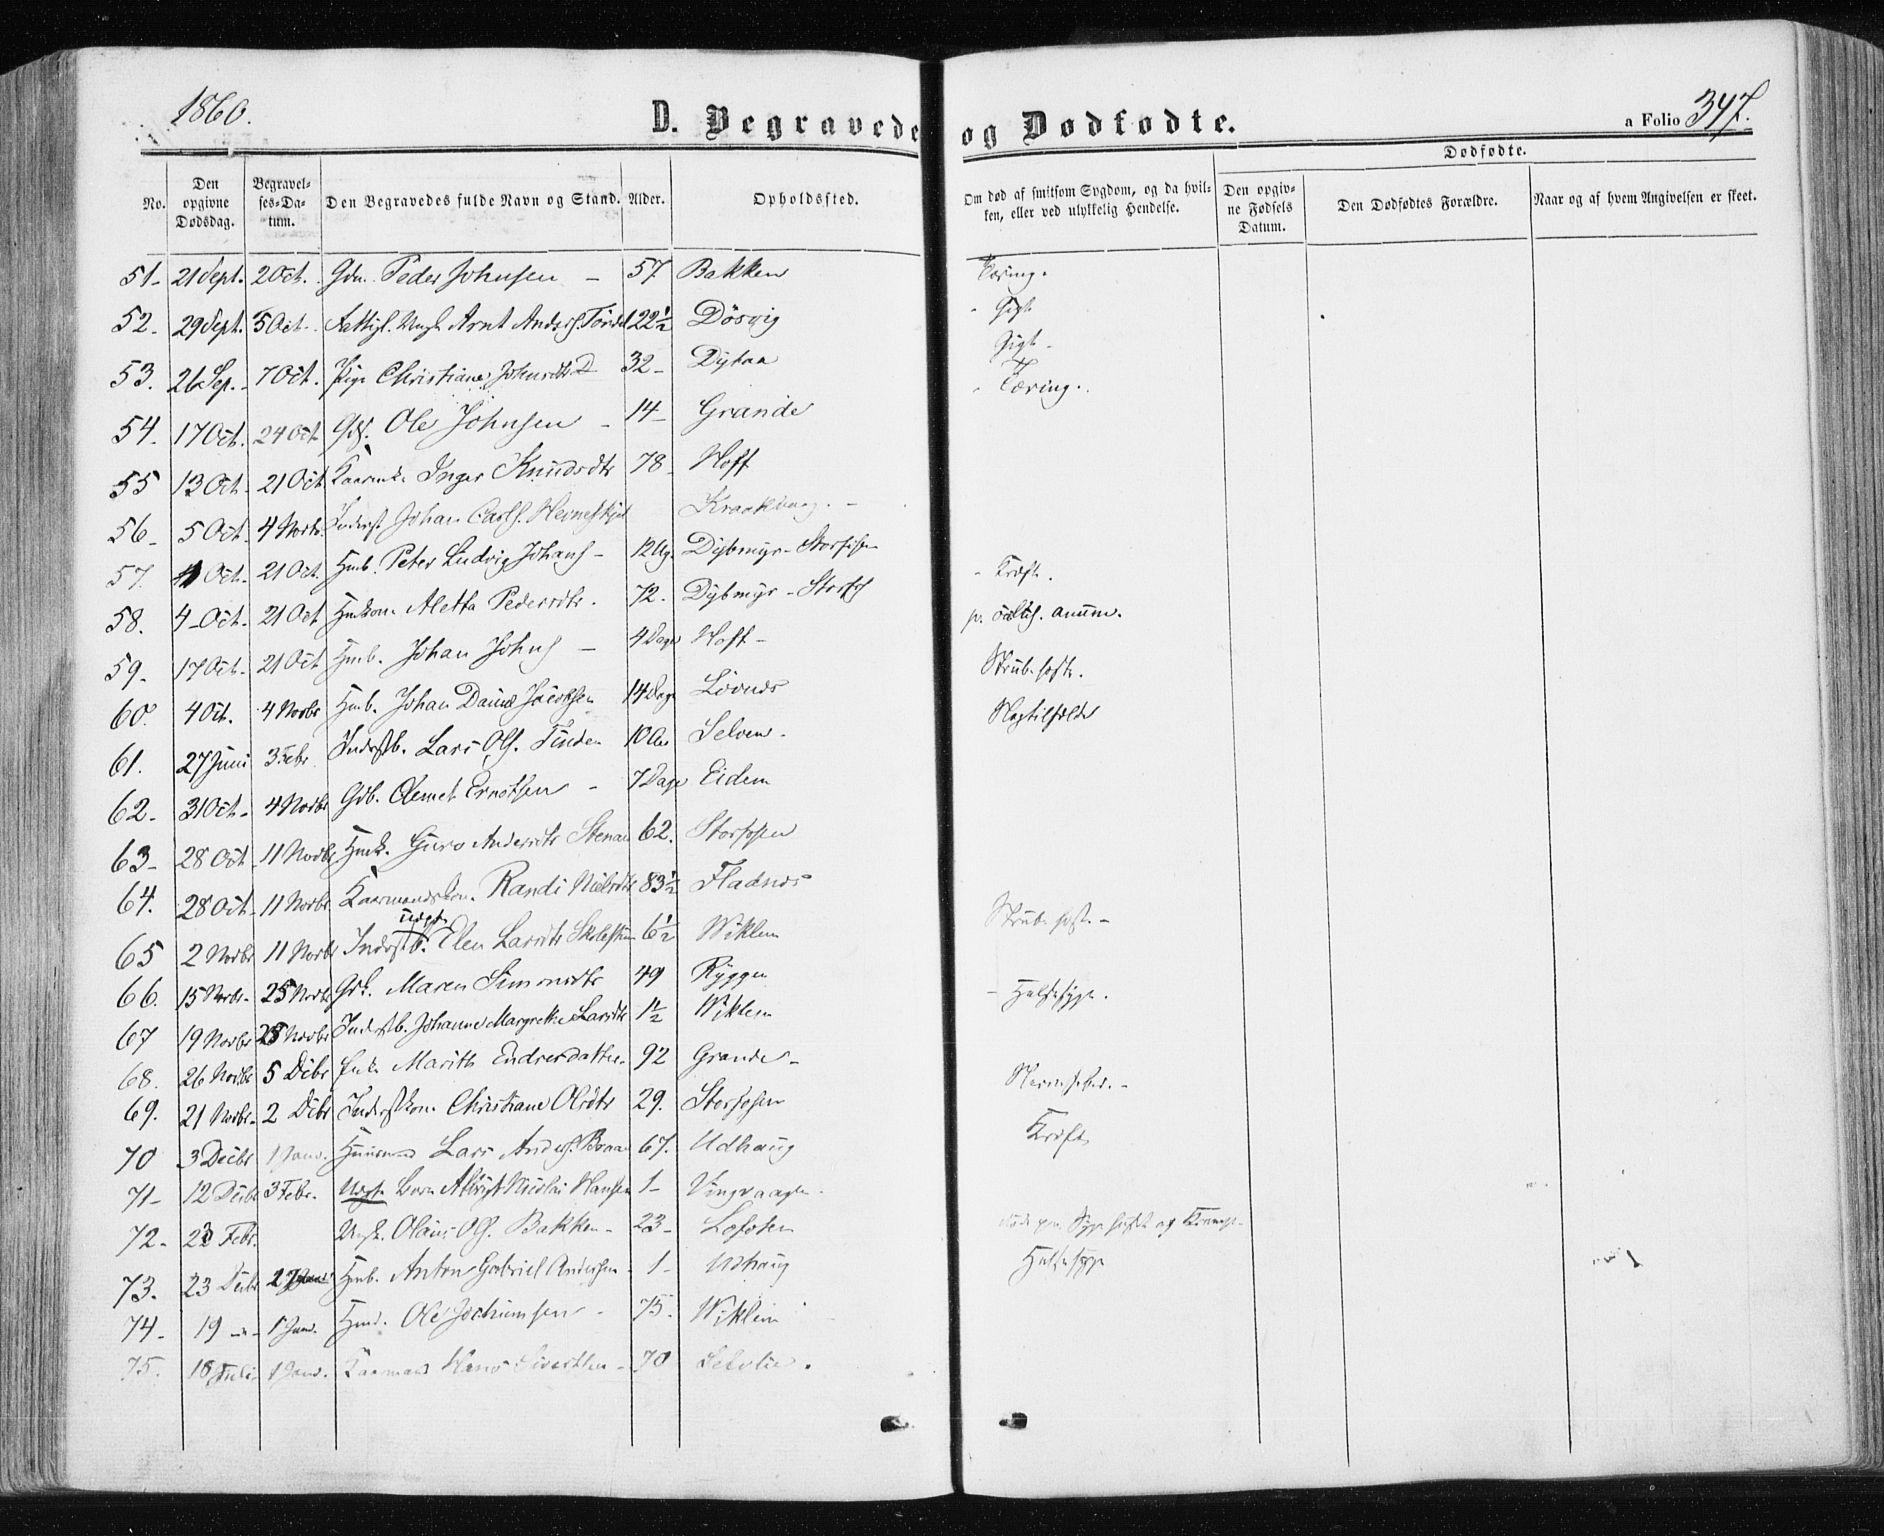 1860.
D. Begravede og Dødfødte.
a Folio 347.
No. Den opgivne Dødsdag. Begravelses-Datum. Den Begravedes fulde Navn og Stand. Alder. Opholdssted. Om død af smitsom Sygdom, og da hvilken, eller ved ulykkelig Hendelse. Dødfødte. Den opgivne Fødsels Datum. Den Dødfødtes Forældre. Naar og af hvem Angivelsen er skeet.
51- 21 Sept. 2 Oct. Gdm. Peder Johnsen - 57 Bakken Tæring.
52. 29 Sept. 5 Oct. Fattigl. Ungk. Arnt Anders. 22½ Dösvig Gigt
53. 26 Sep. 7 Oct. Pige Christiane Johnsdtr 32- Dybaa Gigt -
54. 17 Oct. 24 Oct. Gds. Ole Johnsen - 14- Grande Tæring.
55 13 Oct. 21 Oct Kaarenk. Inger Knudsdtr 78- Hoff
56- 5 Oct. 4 Novbr. Inderst Johan Carls. Hevneskjel Kraakvaag. -
57. Oct. 21 Oct. Hmb. Peter Ludvig Johans - 12 Ug. Dybmyr - Storfosen - Kræft.
58. 4 Oct. 21 Oct Huskone Aletta Pedersdtr. 72. Dybmyr - Storfos
59. 17 Oct. 21 Oct Hmb. Johan Johns - 4 Dage Hoff - Strubehoste.
60. 4 Oct. 4 Novbr Hmb. Johan Daniel Jacobsen 14 Dage Lövnes Slagtilfælde
61. 27 Juni 3 Febr. Inderstb. Lars Ols. Tinden 10 Aar Selven.
62- 31 Oct. 4 Novbr Gdb. Clemet Erntsen - 7 Dage Eidem
63- 28 Oct. 11 Novbr Hmk. Guro Andersdtr Stenaa 62. Storfosen
64. 28 Oct. 11 Novbr. Kaarmandskone. Randi Nielsdtr 83½ Fladnes
65 2 Novbr 11 Novbr Inderstb. uægte Elen Larsdtr 6½ Wiklem Strubehoste. -
66. 15 Novbr. 25 Novbr Gdk. Maren Simonsdtr 49 Ryggen
67 19 Novbr 25 Novbr Inderstb. Johanne Margrethe Larsdtr 1½ Wiklem - Halssyge.
68. 26 Novbr 5 Dcbr Enke Marith Endresdatter 92 Grande -
69. 21 Novbr. 2 Dcbr Inderstkone Christiane Olsdtr 29. Storfosen Nervefeber. -
70 3 Decbr 1 Janv. Huusmand Lars Anders. Braa 67. Udhaug Kræft
71- 12 Decbr 3 Febr. Uægte Barn Albrigt Nicolai Hansen 1- Vingvaagen.
72. Febr. Ungk. Olaus Ols. Bakken - 23- Lofoten
73. 23 Decbr 27 Hmb. Anton Gabriel Andersen 1- Udhaug Halssyge
74- 19 -"- 1 Janv. Hmd. Ole Jochumsen - 75. Wiklem
75. 18 Juli 1 Janv. Kaarmand Hans Sivertsen - 70 Selvlie.